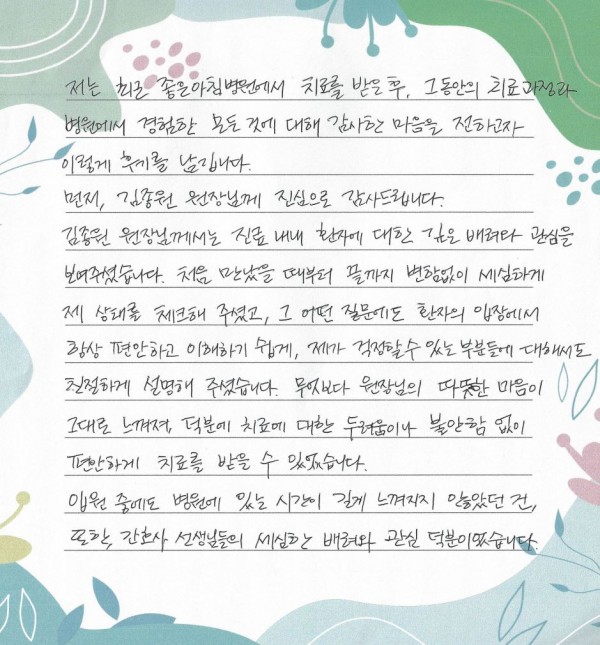 저는 최근 좋은아침병원에서 치료를 받은 후, 그동안의 치료과정과
병원에서 경험한 모든 것에 대해 감사한 마음을 전하고자
이렇게 후기를 남깁니다.
먼저, 김종원 원장님께 진심으로 감사드립니다.
김종원 원장님께서는 진료 내내 환자에 대한 깊은 배려와 관심을
보여주셨습니다. 처음 만났을 때부터 끝까지 변함없이 세심하게
제 상태를 체크해 주셨고, 그 어떤 질문에도 환자의 입장에서
항상 편안하고 이해하기 쉽게, 제가 걱정할수 있는 부분들에 대해서도
친절하게 설명해 주셨습니다. 무엇보다 원장님의 따뜻한 마음이
그대로 느껴져, 덕분에 치료에 대한 두려움이나 불안함 없이
편안하게 치료를 받을 수 있었습니다.
입원 중에도 병원에 있는 시간이 길게 느껴지지 않았던 건,
또한, 간호사 선생님들의 세심한 배려와 관심 덕분이었습니다.